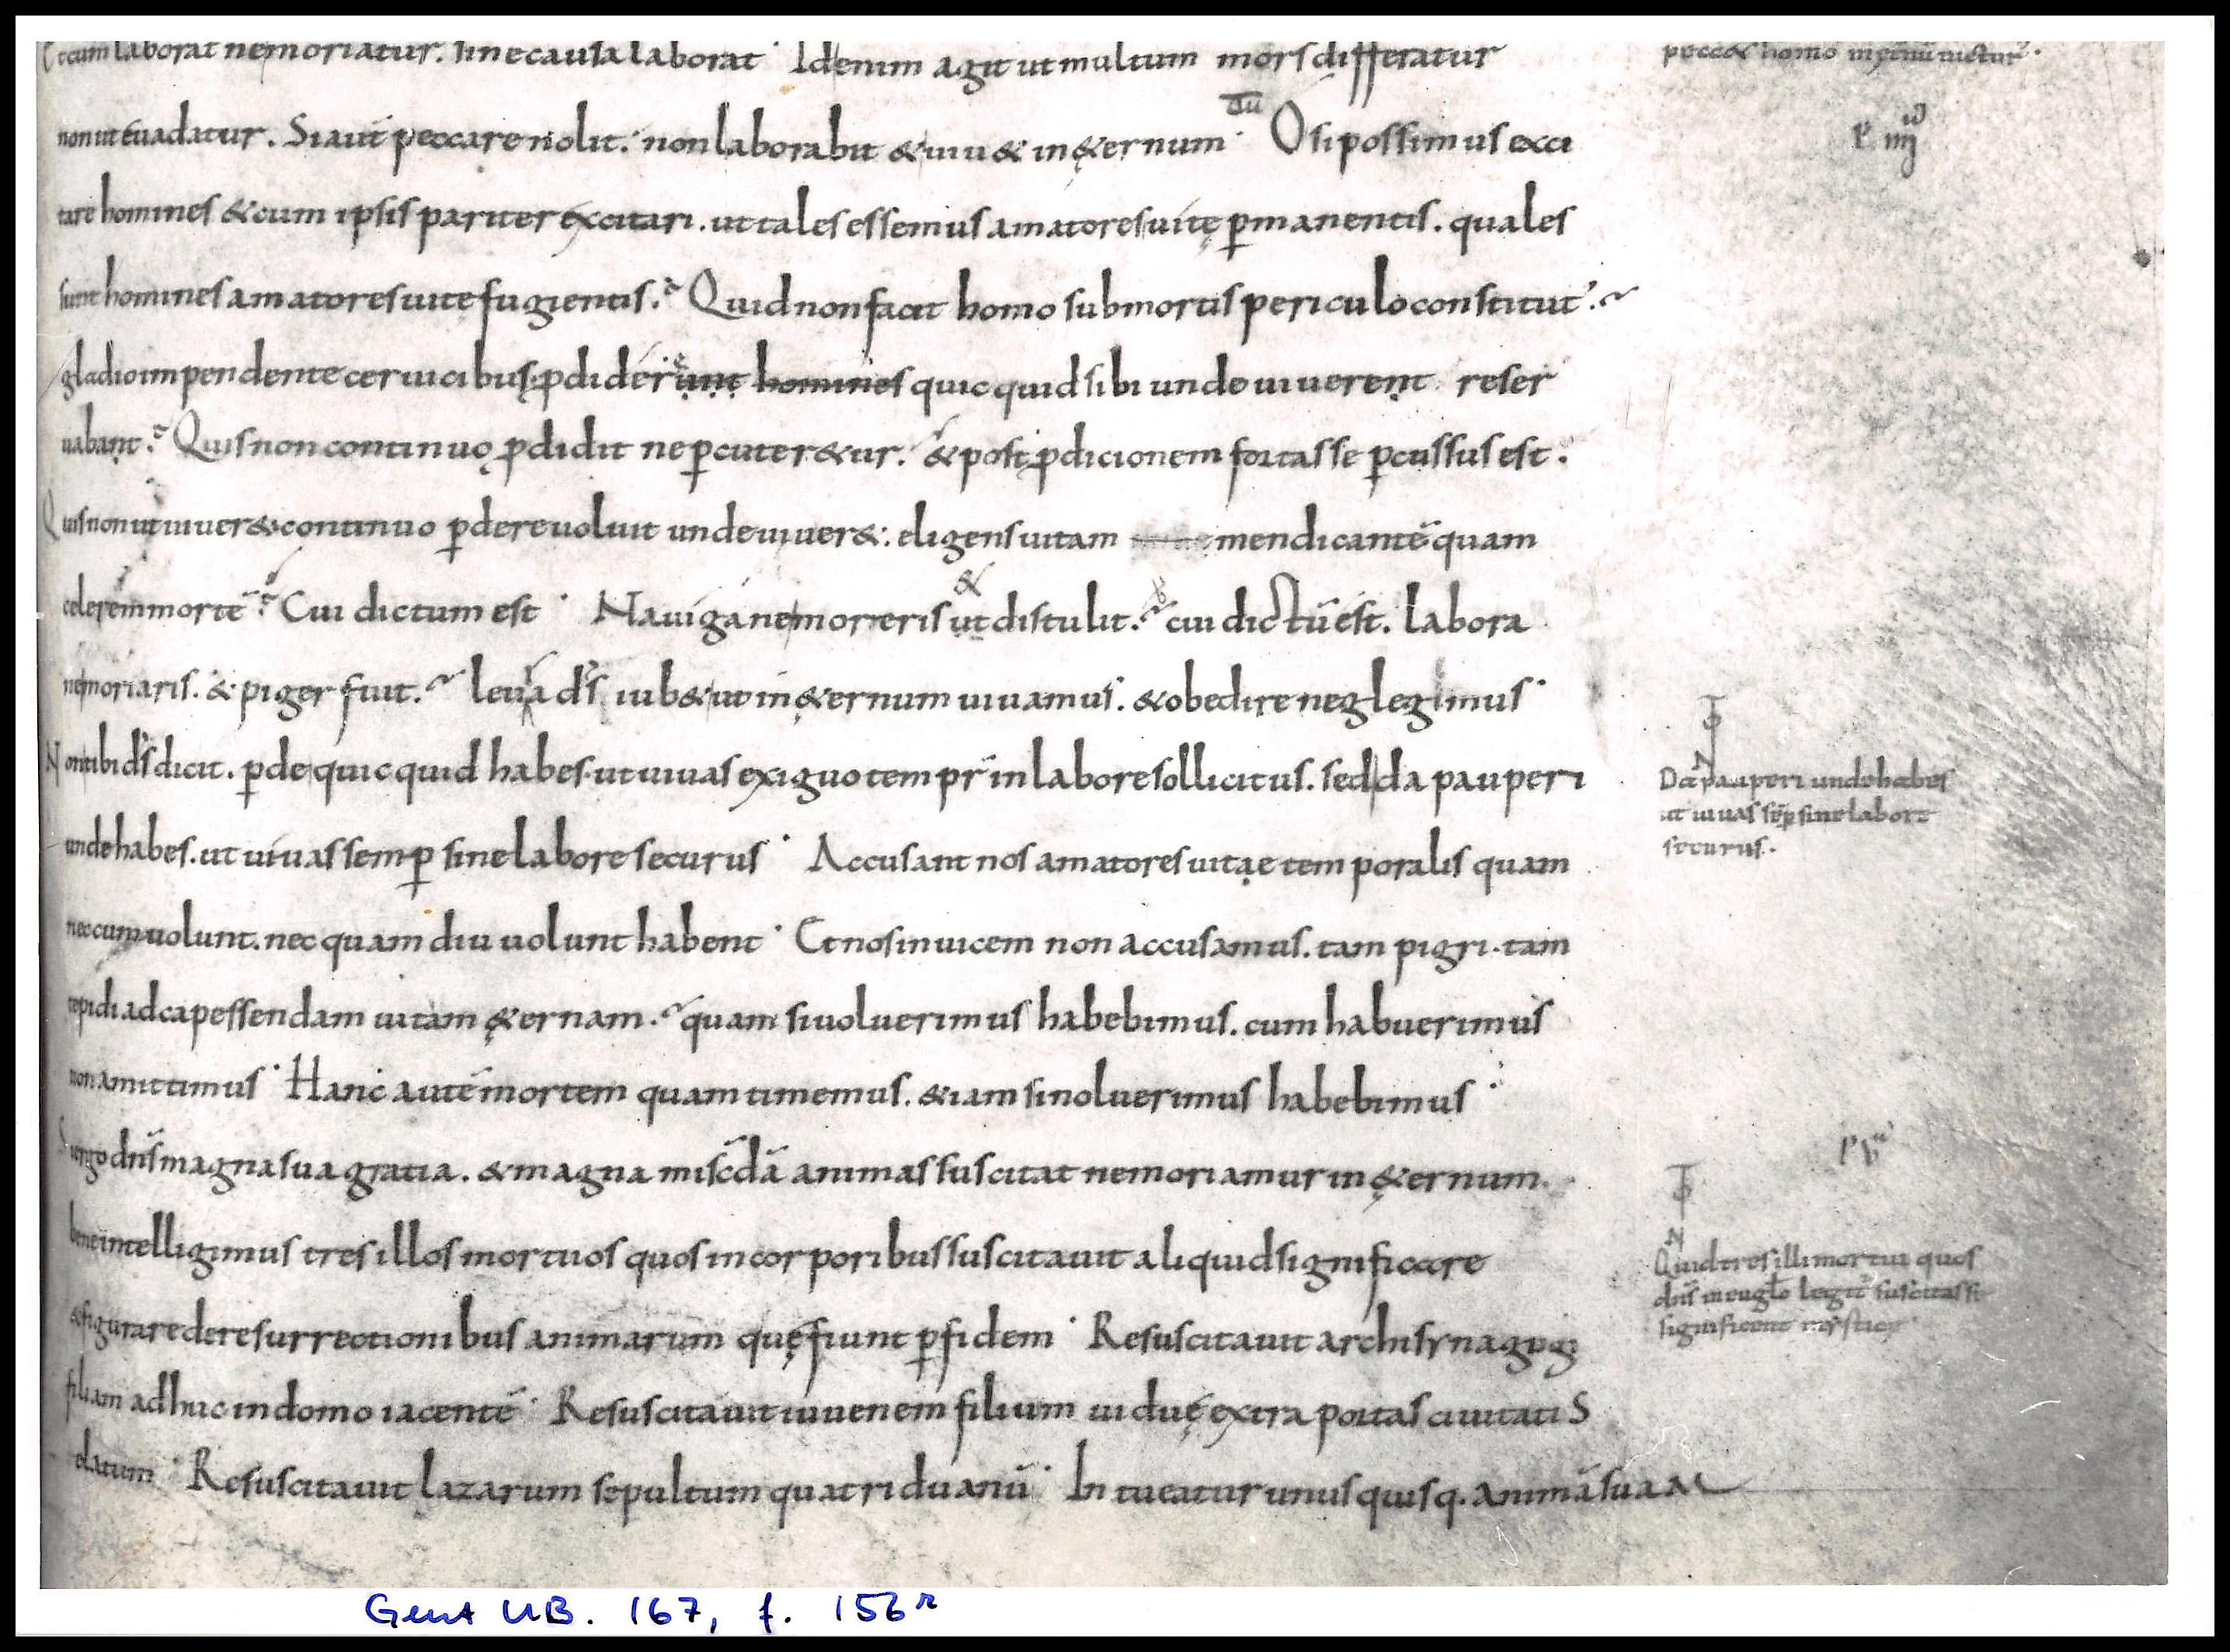 Et cum laborat ne moriatur. sine causa laborat· Id enim agit ut multum mors differatur
non ut euadatur. Si aut̄ peccare nolit. non laborabit & uiu& in ę&ernum· O si possimus exci
tare homines & cum ipsis pariter excitari. ut tales essemus amatores uitę p̱manentis. quales
sunt homines amatores uite fugientis.? Quid non facit homo sub mortis periculo constitut'.?
gladio impendente ceruicibus p̱diderunt homines quicquid sibi unde uiuerent reser
uabant.? Quis non continuo p̱didit ne p̱cuter&ur. & post p̱dicionem fortasse p̱cussus est.
Quis non ut uiuer& continuo p̱dere uoluit unde uiuer&: eligens uitam mendicantē quam
celerem mortē? Cui dictum est· Nauiga ne morieris ut distulit.? cui dictū est. labora
ne moriaris. & piger fuit.? leuia d̄s iub& ut in ę&ernum uiuamus. & obedire neglegimus·
Non tibi d̄s dicit. p̱de quicquid habes. ut uiuas exiguo tempr̄ in labore sollicitus. sed da pauperi
unde habes. ut uiuas semp̱ sine labore securus· Accusant nos amatores uitae temporalis quam
nec cum uolunt. nec quam diu uolunt habent· Et nos inuicem non accusamus. tam pigri. tam
tepidi ad capessendam uitam ę&ernam.? quam si uoluerimus habebimus. cum habuerimus
non amittimus· Hanc autē mortem quam timemus. &iam si noluerimus habebimus·
Si ergo dn̄s magna sua gratia. & magna misc̄dā animas suscitat ne moriamur in ę&ernum.
bene intelligimus tres illos mortuos quos in corporibus suscitauit aliquid significare
& figurare de resurrectionibus animarum quę fiunt p̱ fidem· Resuscitauit archisynagogi
filiam adhuc in domo iacentē· Resuscitauit iuuenem filium uiduę extra portas ciuitatis
elatum· Resuscitauit lazarum sepultum quatriduanū· Intueatur unusquisq. animā suam
pecc& homo
Da pauperi unde habes
ut uiuas sēp̱ sine labore
securus.
Quid tres illi mortui quos
dn̄s in euḡlo legit̄ suscitasse
significent mystice
Gent UB. 167, f. 156r